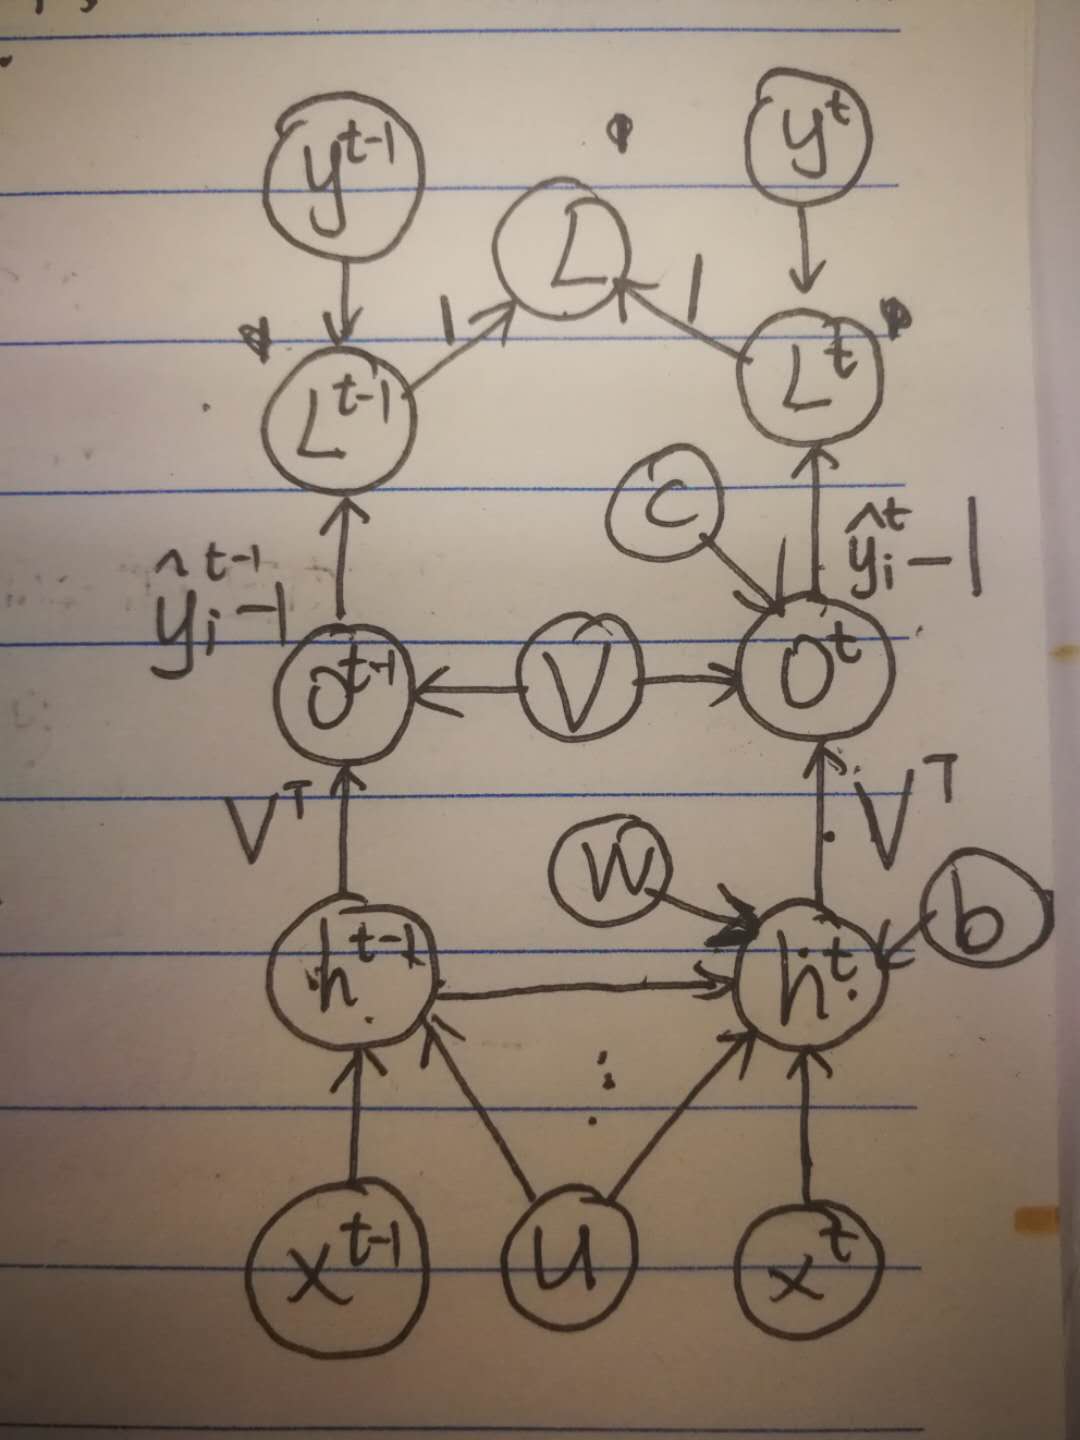 y^{t-1} L y^t
1 1
L^{t-1} L^t
C
ŷ_i^{t-1}-1 ŷ_i^t-1
O^{t-1} V O^t
V^T V^T
W b
h^{t-1} h^t
x^{t-1} U x^t